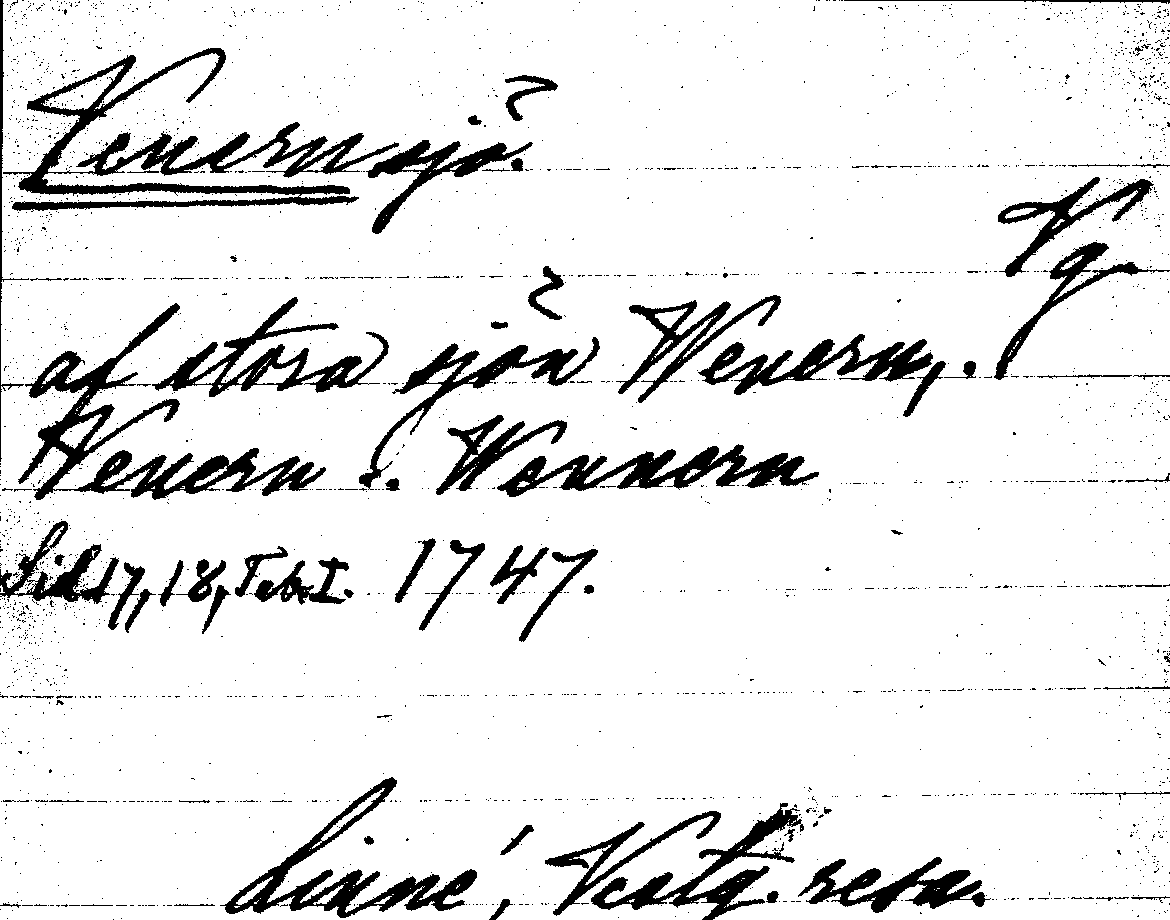 Venernsjö.
Vg.
af stora sjön Wenern,.
Wenern s. Wennern
Sid 17, 18, Tab. I. 1747.
Linné, Vestg. resa.